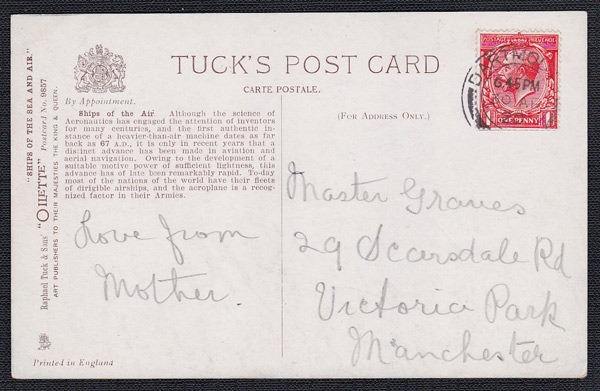 TUCK'S POST CARD
CARTE POSTALE.
By Appointment.
(FOR ADDRESS ONLY.)
Ships of the Air. Although the science of
Aeronautics has engaged the attention of inventors
for many centuries, and the first authentic in-
stance of a heavier-than-air machine dates as far
back as 67 A.D., it is only in recent years that a
distinct advance has been made in aviation and
aerial navigation. Owing to the development of a
suitable motive power of sufficient lightness, this
advance has of late been remarkably rapid. To-day
most of the nations of the world have their fleets
of dirigible airships, and the aeroplane is a recog-
nized factor in their Armies.
Love from
Mother.
Master Graves
29 Scarsdale Rd
Victoria Park
Manchester
"SHIPS OF THE SEA AND AIR."
Raphael Tuck & Sons' "OILETTE" Postcard No. 9857
ART PUBLISHERS TO THEIR MAJESTIES THE KING & QUEEN.
Printed in England
POSTAGE REVENUE
ONE PENNY
6.45 PM